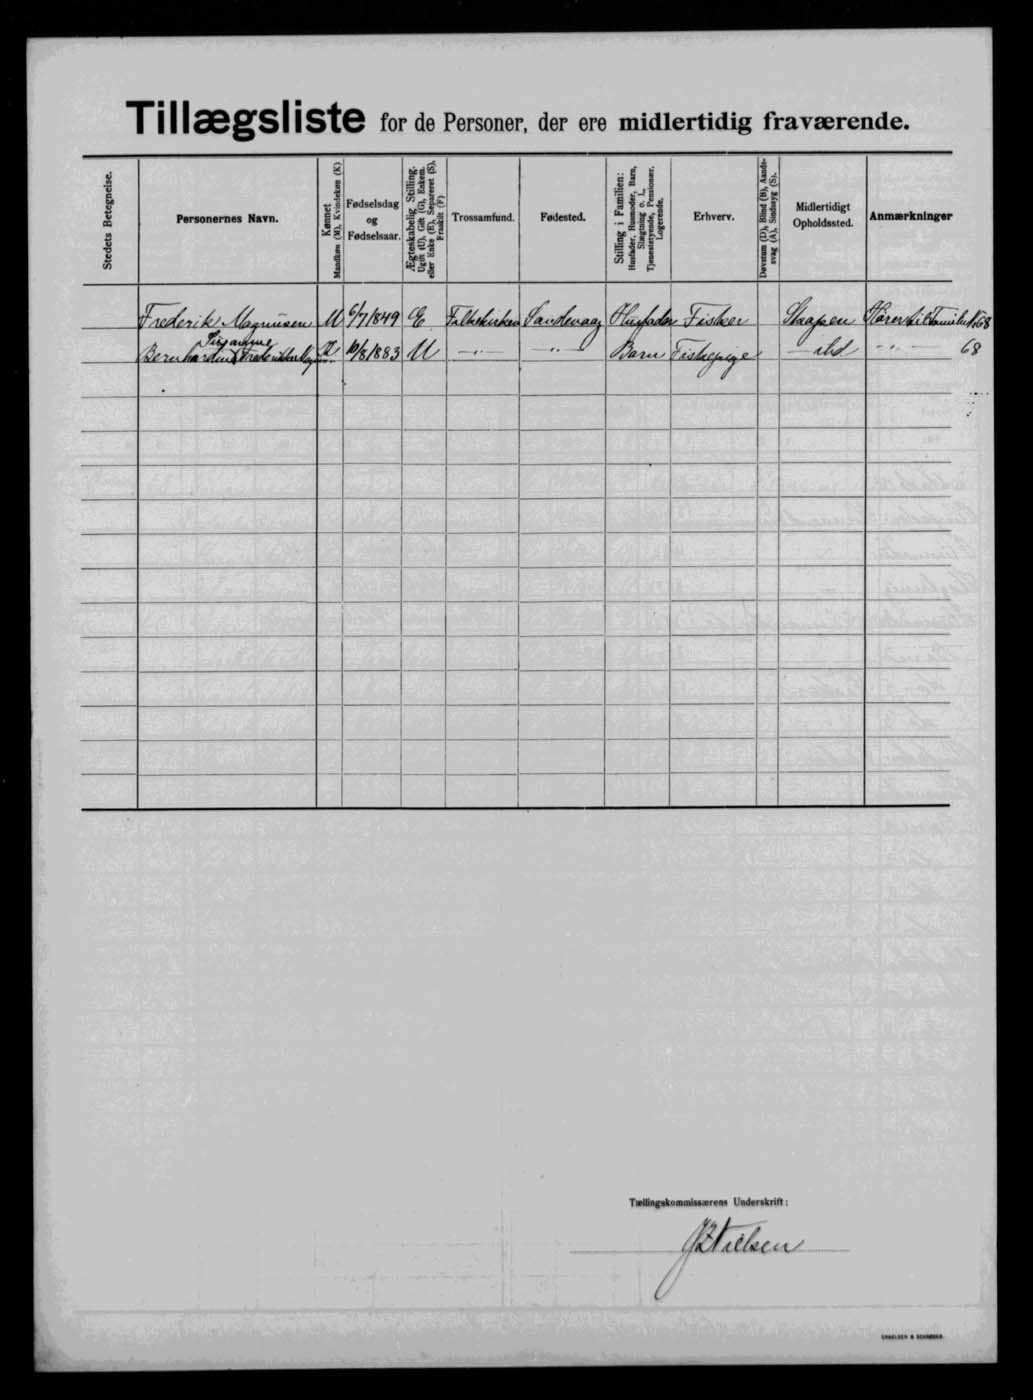 Tillægsliste for de Personer, der ere midlertidig fraværende.
Stedets Betegnelse.
Personernes Navn.
Kønnet
Mandkøn (M), Kvindekøn (K)
Fødselsdag
og
Fødselsaar.
Ægteskabelig Stilling.
Ugift (U), Gift (G), Enkem.
eller Enke (E), Separeret (S),
Fraskilt (F)
Trossamfund.
Fødested.
Stilling i Familien:
Husfader, Husmoder, Barn,
Slægtning o. l.,
Tjenestetyende, Pensionær,
Logerende.
Erhverv.
Døvstum (D), Blind (B), Aands-
svag (A), Sindssyg (S).
Midlertidigt
Opholdssted.
Anmærkninger
Frederik Magnussen M 6/7 1849 E Folkekirken Sandevaag Husfader Fisker Skaapen Hører til Familie No 68
Susanne
Bernhardine Frederikke K 10/8 1883 U —„— —„— Barn Fiskepige — ibd —„— 68
Tællingskommissærens Underskrift:
Nielsen
ENGELSEN & SCHRØDER.